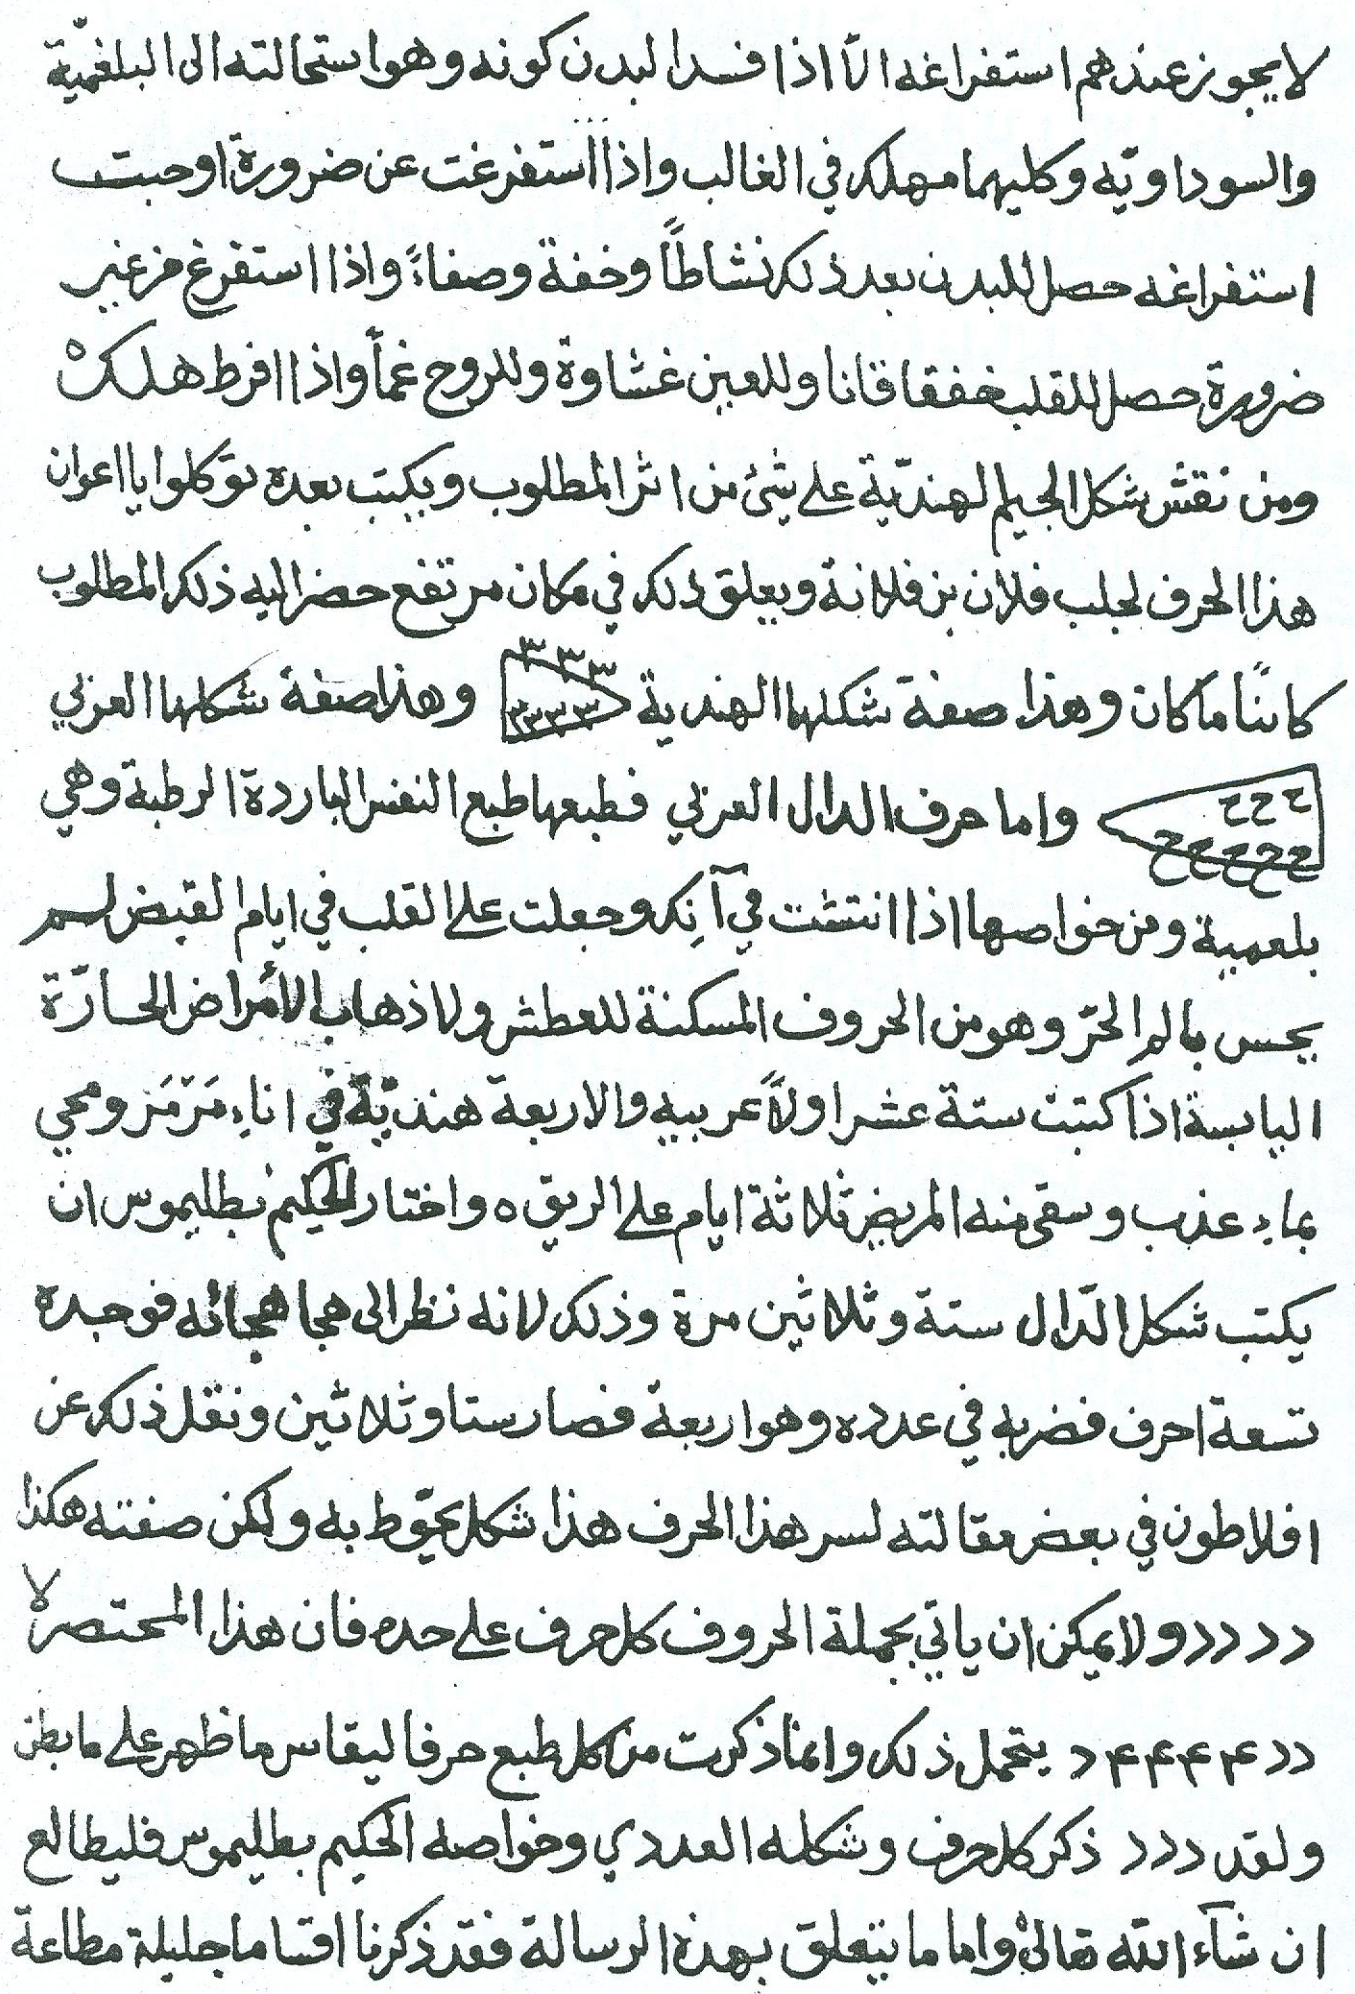 لا يجوز عندهم استفراغه الّا اذا فسد البدن كونه وهو استحالته الى البلغميّة
والسوداويّه وكليهما مهلكه في الغالب واذا استفرغت عن ضرورة اوجبت
استفراغه حصل للبدن بعد ذلك نشاطاً وخفة وصفاءً واذا استفرغ من غير
ضرورة حصل للقلب خفقاقانا وللعين غشاوة وللروح غماً واذا افرط هلك
ومن نقش شكل الجيم الهنديّة على شئ من اثر المطلوب ويكتب بعده توكلوا يا اعوان
هذا الحرف لجلب فلان بن فلانة ويعلق ذلك في مكان مرتفع حضر اليه ذلك المطلوب
كائنًا ما كان وهذا صفة شكلها الهندية ٣ ٣ ٣ ٣ ٣ ٣ ٣ وهذا صفة شكلها العربي
ع ع ع ح ح ح ح ح واما حرف الدال العربي فطبعها طبع النفس الباردة الرطبة وهي
بلغمية ومن خواصها اذا انتقشت في آنِك وجعلت على القلب في ايام القبض لم
يحس بالم الحرّ وهو من الحروف المسكنة للعطش ولاذهاب الأمراض الحارّة
اليابسة اذا كتبت ستة عشر اولاً عربيه والاربعة هنديّة في اناءِ مَرْمَر ومحي
بماءِ عذب وسقى منه المريض ثلاثة ايام على الريق ه واختار الحكيم بطليموس ان
يكتب شكل الدّال ستة وثلاثين مرة وذلك لانه نظر الى هجا هجائه فوجده
تسعة احرف فضربه في عدده وهو اربعة فصار ستا وثلاثين ونقل ذلك عن
افلاطون في بعض مقالته لسر هذا الحرف هذا شكل يحوّط به ولكن صفته هكذا
د د د د د ولا يمكن ان ياتي بجملة الحروف كل حرف على حده فان هذا المختصر لا
د د ۴ ۴ ۴ ۴ د يتحمل ذلك وانما ذكرت من كل طبع حرفا ليقاس ما ظهر على ما بطن
ولقد د د د ذكر كل حرف وشكله العددي وخواصه الحكيم بطليموس فليطالع
ان شآء الله تعالىْ واما ما يتعلق بهذه الرسالة فقد ذكرنا اقساما جليلة مطاعة